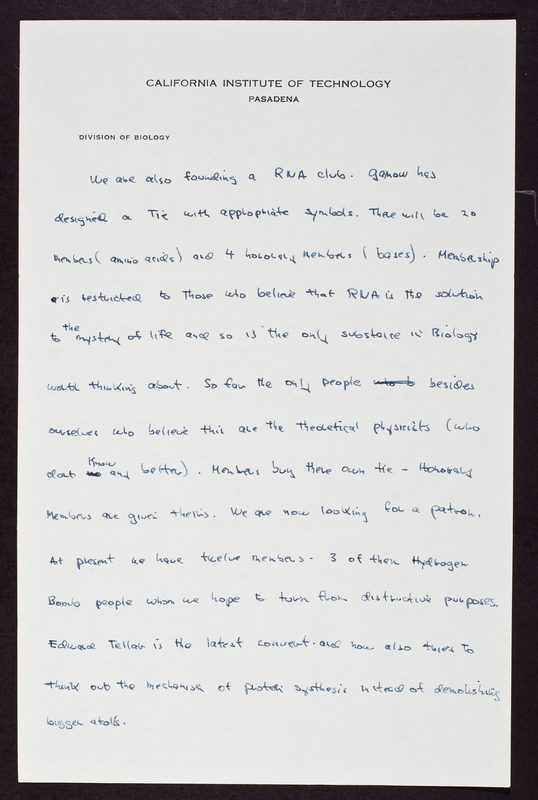 CALIFORNIA INSTITUTE OF TECHNOLOGY
PASADENA
DIVISION OF BIOLOGY
We are also founding a RNA club. Gamow has
designed a Tie with appropriate symbols. There will be 20
members (amino acids) and 4 honorary members (bases). Membership
is restricted to those who believe that RNA is the solution
to the mystery of life and so is the only substance in Biology
worth thinking about. So far the only people besides
ourselves who believe this are the theoretical physicists (who
dont know any better). Members buy there own tie - Honorary
Members are given theirs. We are now looking for a patron.
At present we have twelve members. 3 of them Hydrogen
Bomb people whom we hope to turn from distructive purposes.
Edward Tellar is the latest convert. and now also tries to
think out the mechanism of protein systhesis instead of demolishing
bigger atolls.